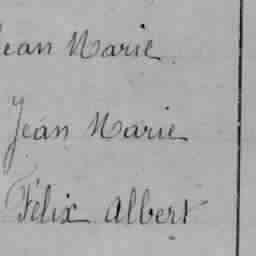 Jean Marie
Jean Marie
Félix Albert